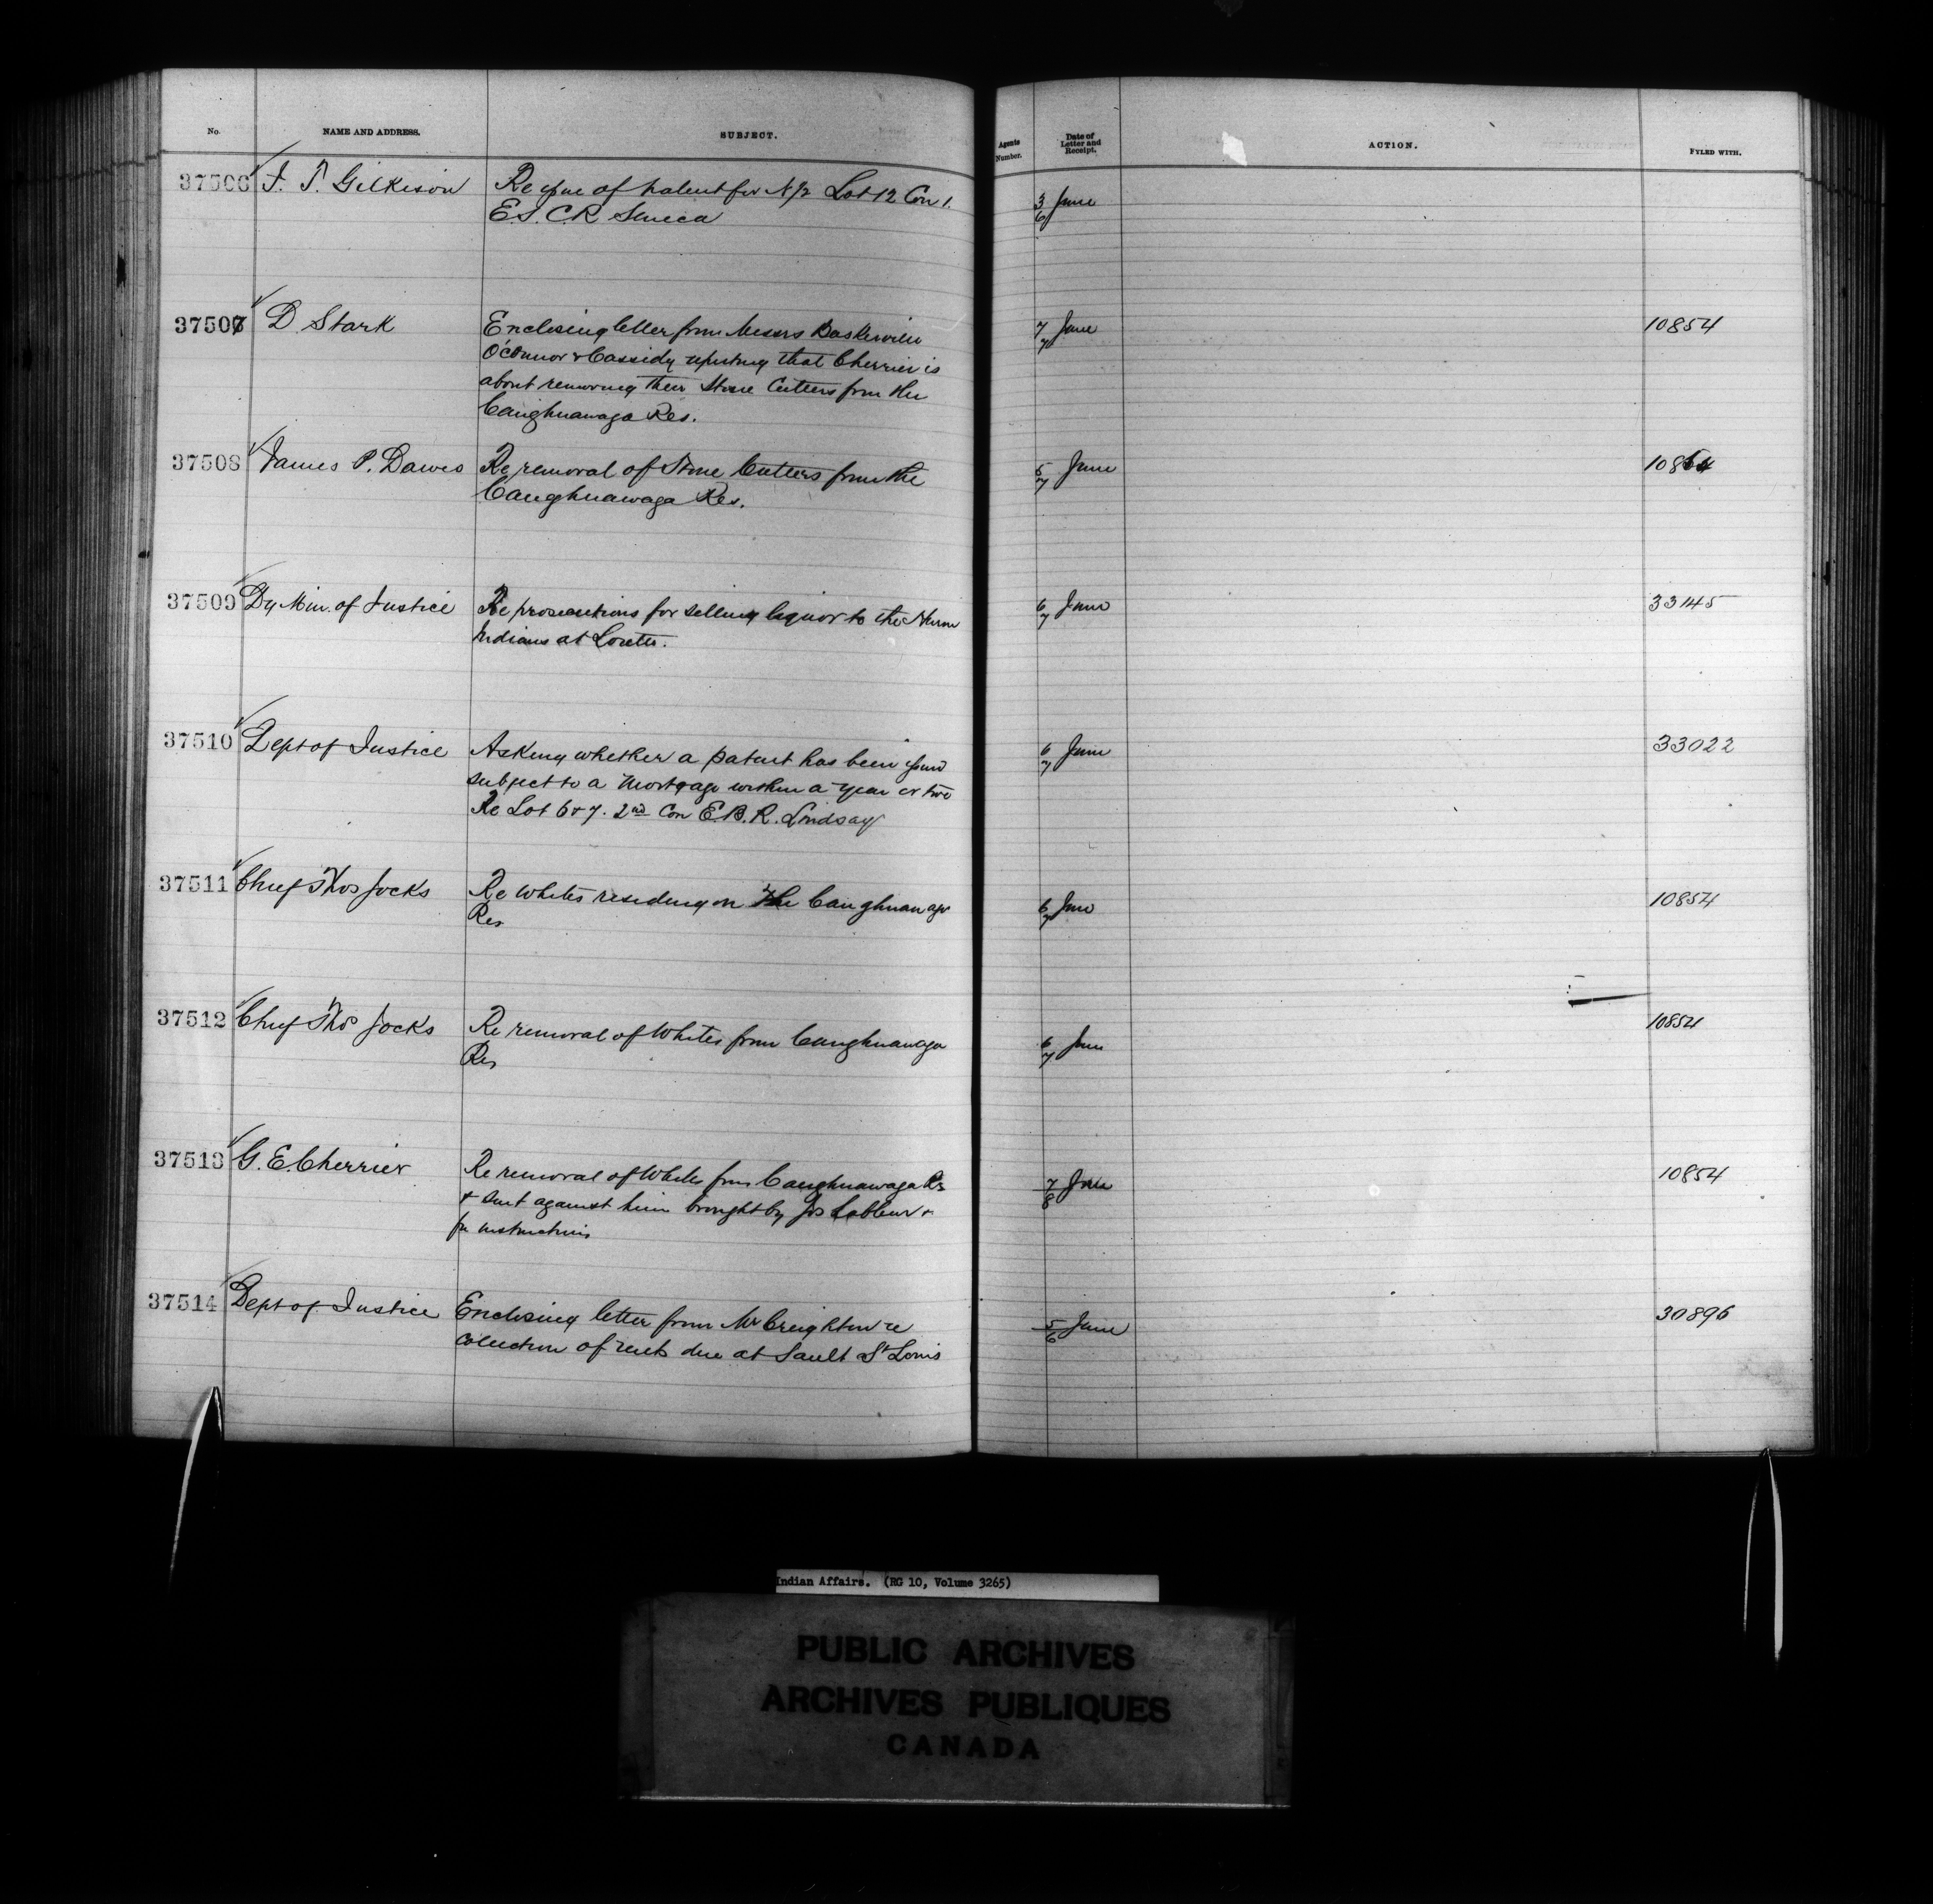 No. NAME AND ADDRESS. SUBJECT. Agents Number. Date of Letter and Receipt. ACTION. FYLED WITH.
37506 J. T. Gilkison Re issue of patent for N ½ Lot 12 Con 1. 3/6 June
E.S. C.R Seneca
37507 D. Stark Enclosing letter from Messrs Baskerville 7/7 June 10854
O'Connor & Cassidy reporting that Cherrier is
about removing their Stone Cutters from the
Caughnawaga Res.
37508 James P. Dawes Re removal of Stone Cutters from the 5/7 June 10854
Caughnawaga Res.
37509 Dy Min. of Justice Re prosecutions for selling liquor to the Huron 6/7 June 33145
Indians at Lorette.
37510 Dept of Justice Asking whether a patent has been issued 6/7 June 33022
subject to a Mortgage within a year or two
Re Lot 6 & 7. 2nd Con E.B.R. Lindsay
37511 Chief Thos Jocks Re Whites residing on the Caughnawaga 6/7 June 10854
Res
37512 Chief Thos Jocks Re removal of Whites from Caughnawaga 6/7 June 10854
Res
37513 G. E. Cherrier Re removal of Whites from Caughnawaga Res 7/8 June 10854
& suit against him brought by Jos &
for instructions
37514 Dept of Justice Enclosing letter from Mr Creighton re 5/6 June 30896
collection of rents due at Sault St Louis
Indian Affairs. (RG 10, Volume 3265)
PUBLIC ARCHIVES
ARCHIVES PUBLIQUES
CANADA